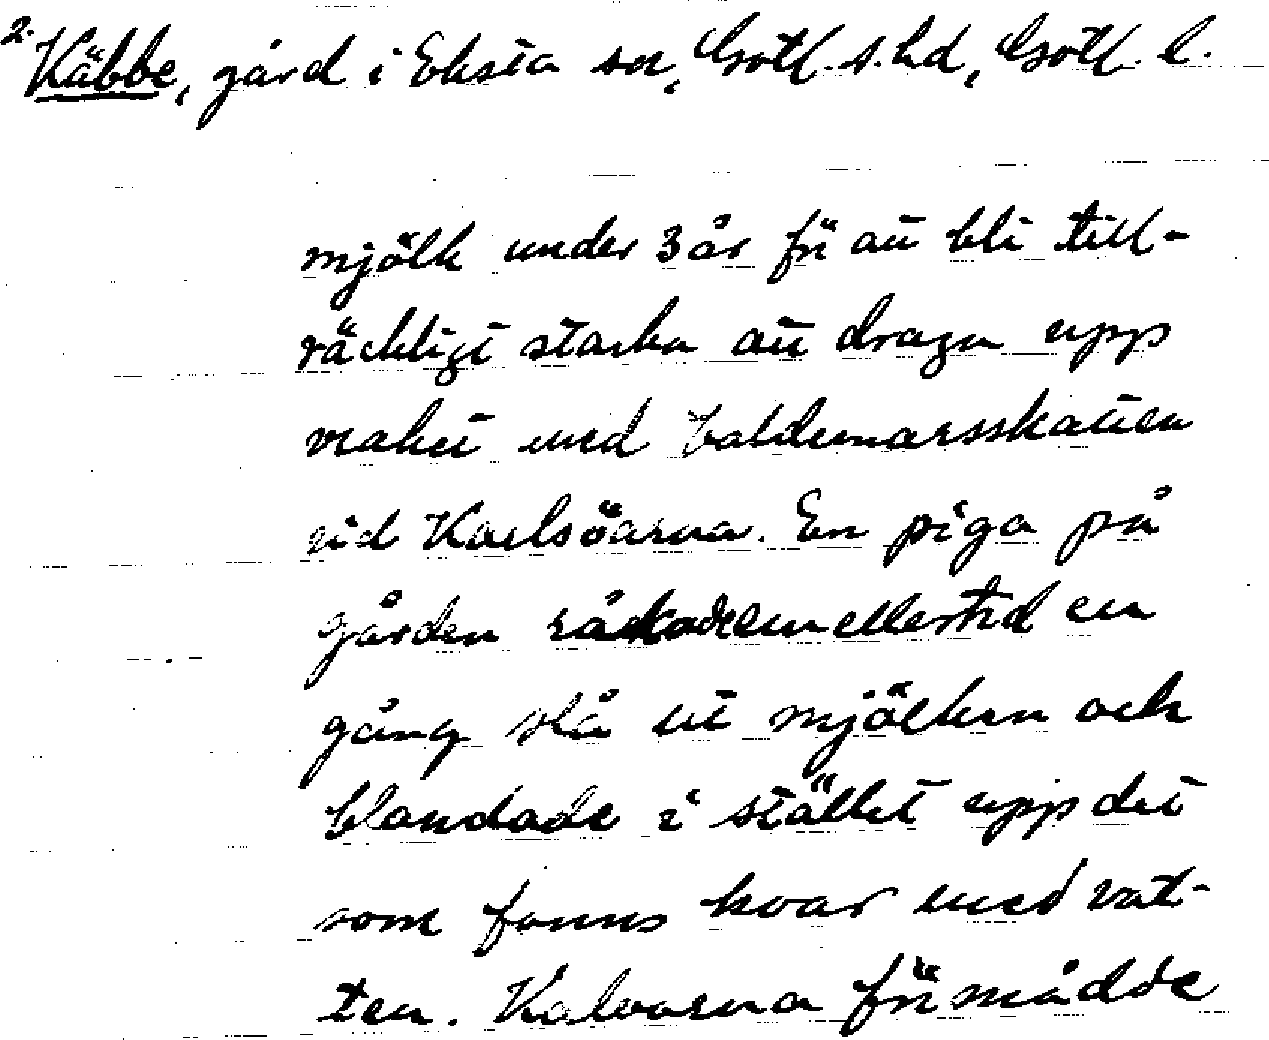 2.
Käbbe, gård i Eksta sn, Gotl. s. hd, Gotl. l.
mjölk under 3 år för att bli till-
räckligt starka att draga upp
vraket med Valdemarsskatten
vid Karlsöarna. En piga på
gården råkade emellertid en
gång slå ut mjölken och
blandade i stället upp det
som fanns kvar med vat-
ten. Kalvarna förmådde